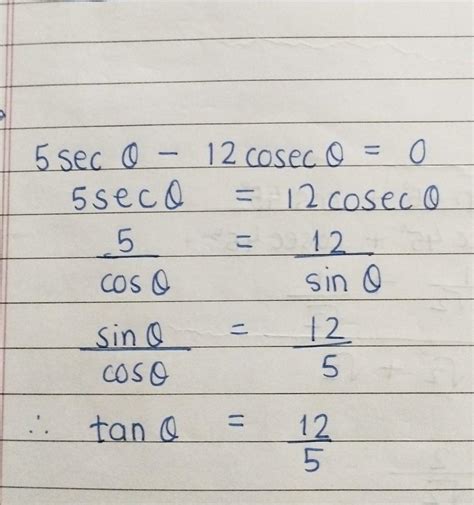 5 sec θ - 12 cosec θ = 0
5 sec θ = 12 cosec θ
5/cos θ = 12/sin θ
sin θ/cos θ = 12/5
∴ tan θ = 12/5